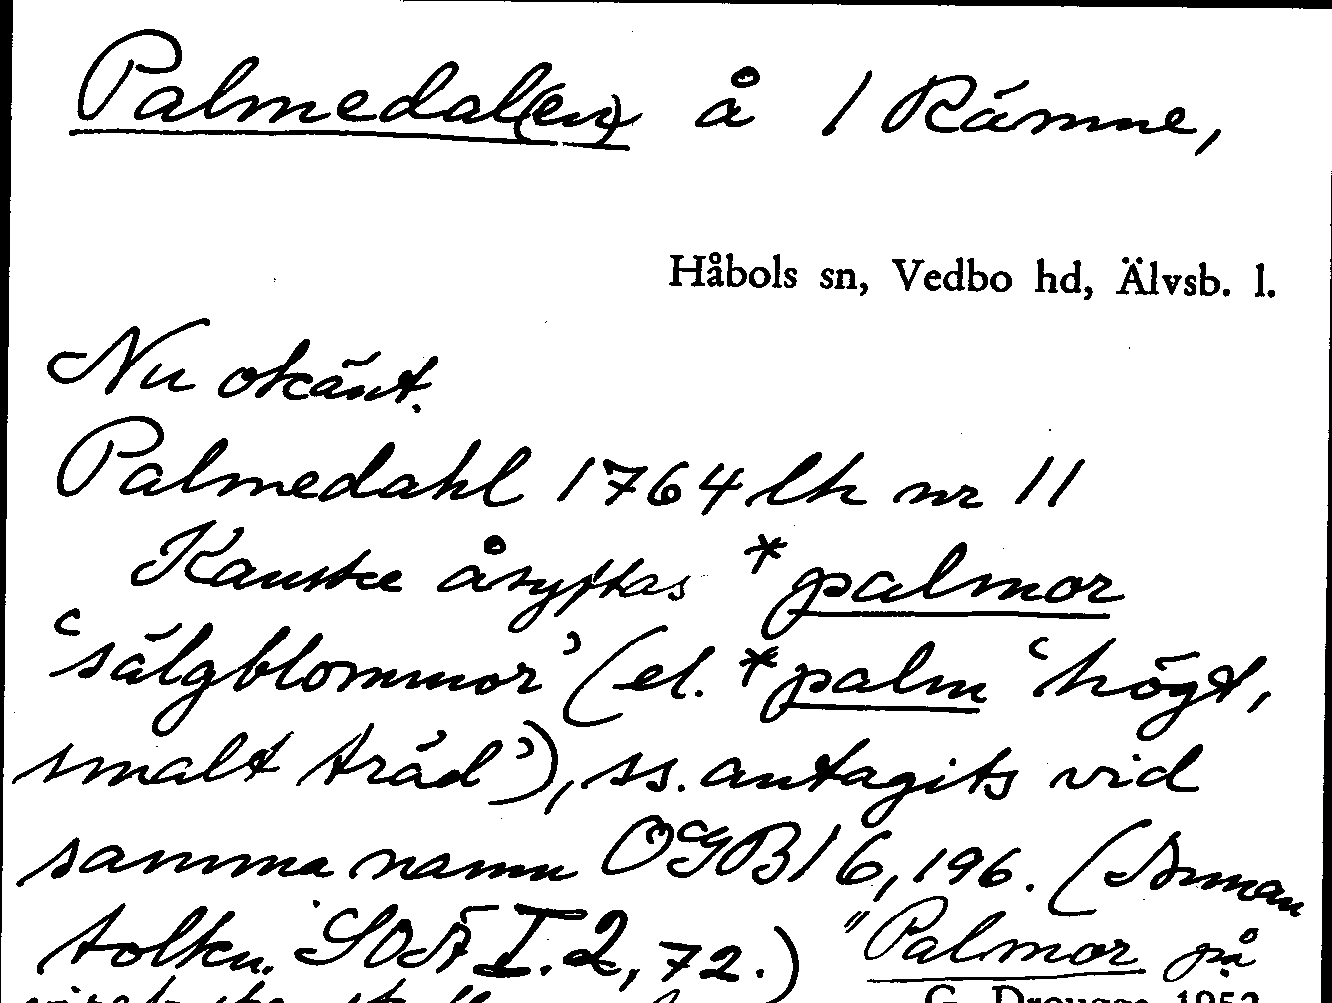 Palmedal(en) å 1 Rämne,
Håbols sn, Vedbo hd, Älvsb. l.
Nu okänt.
Palmedahl 1764 lh nr 11
Kanske åsyftas *palmor
'sälgblommor' (el. *palm 'högt,
smalt träd'), ss. antagits vid
samma namn OGB 16, 196. (Annan
tolkn. SOÄ I.2, 72.) "Palmor på
G. Drougge 1953